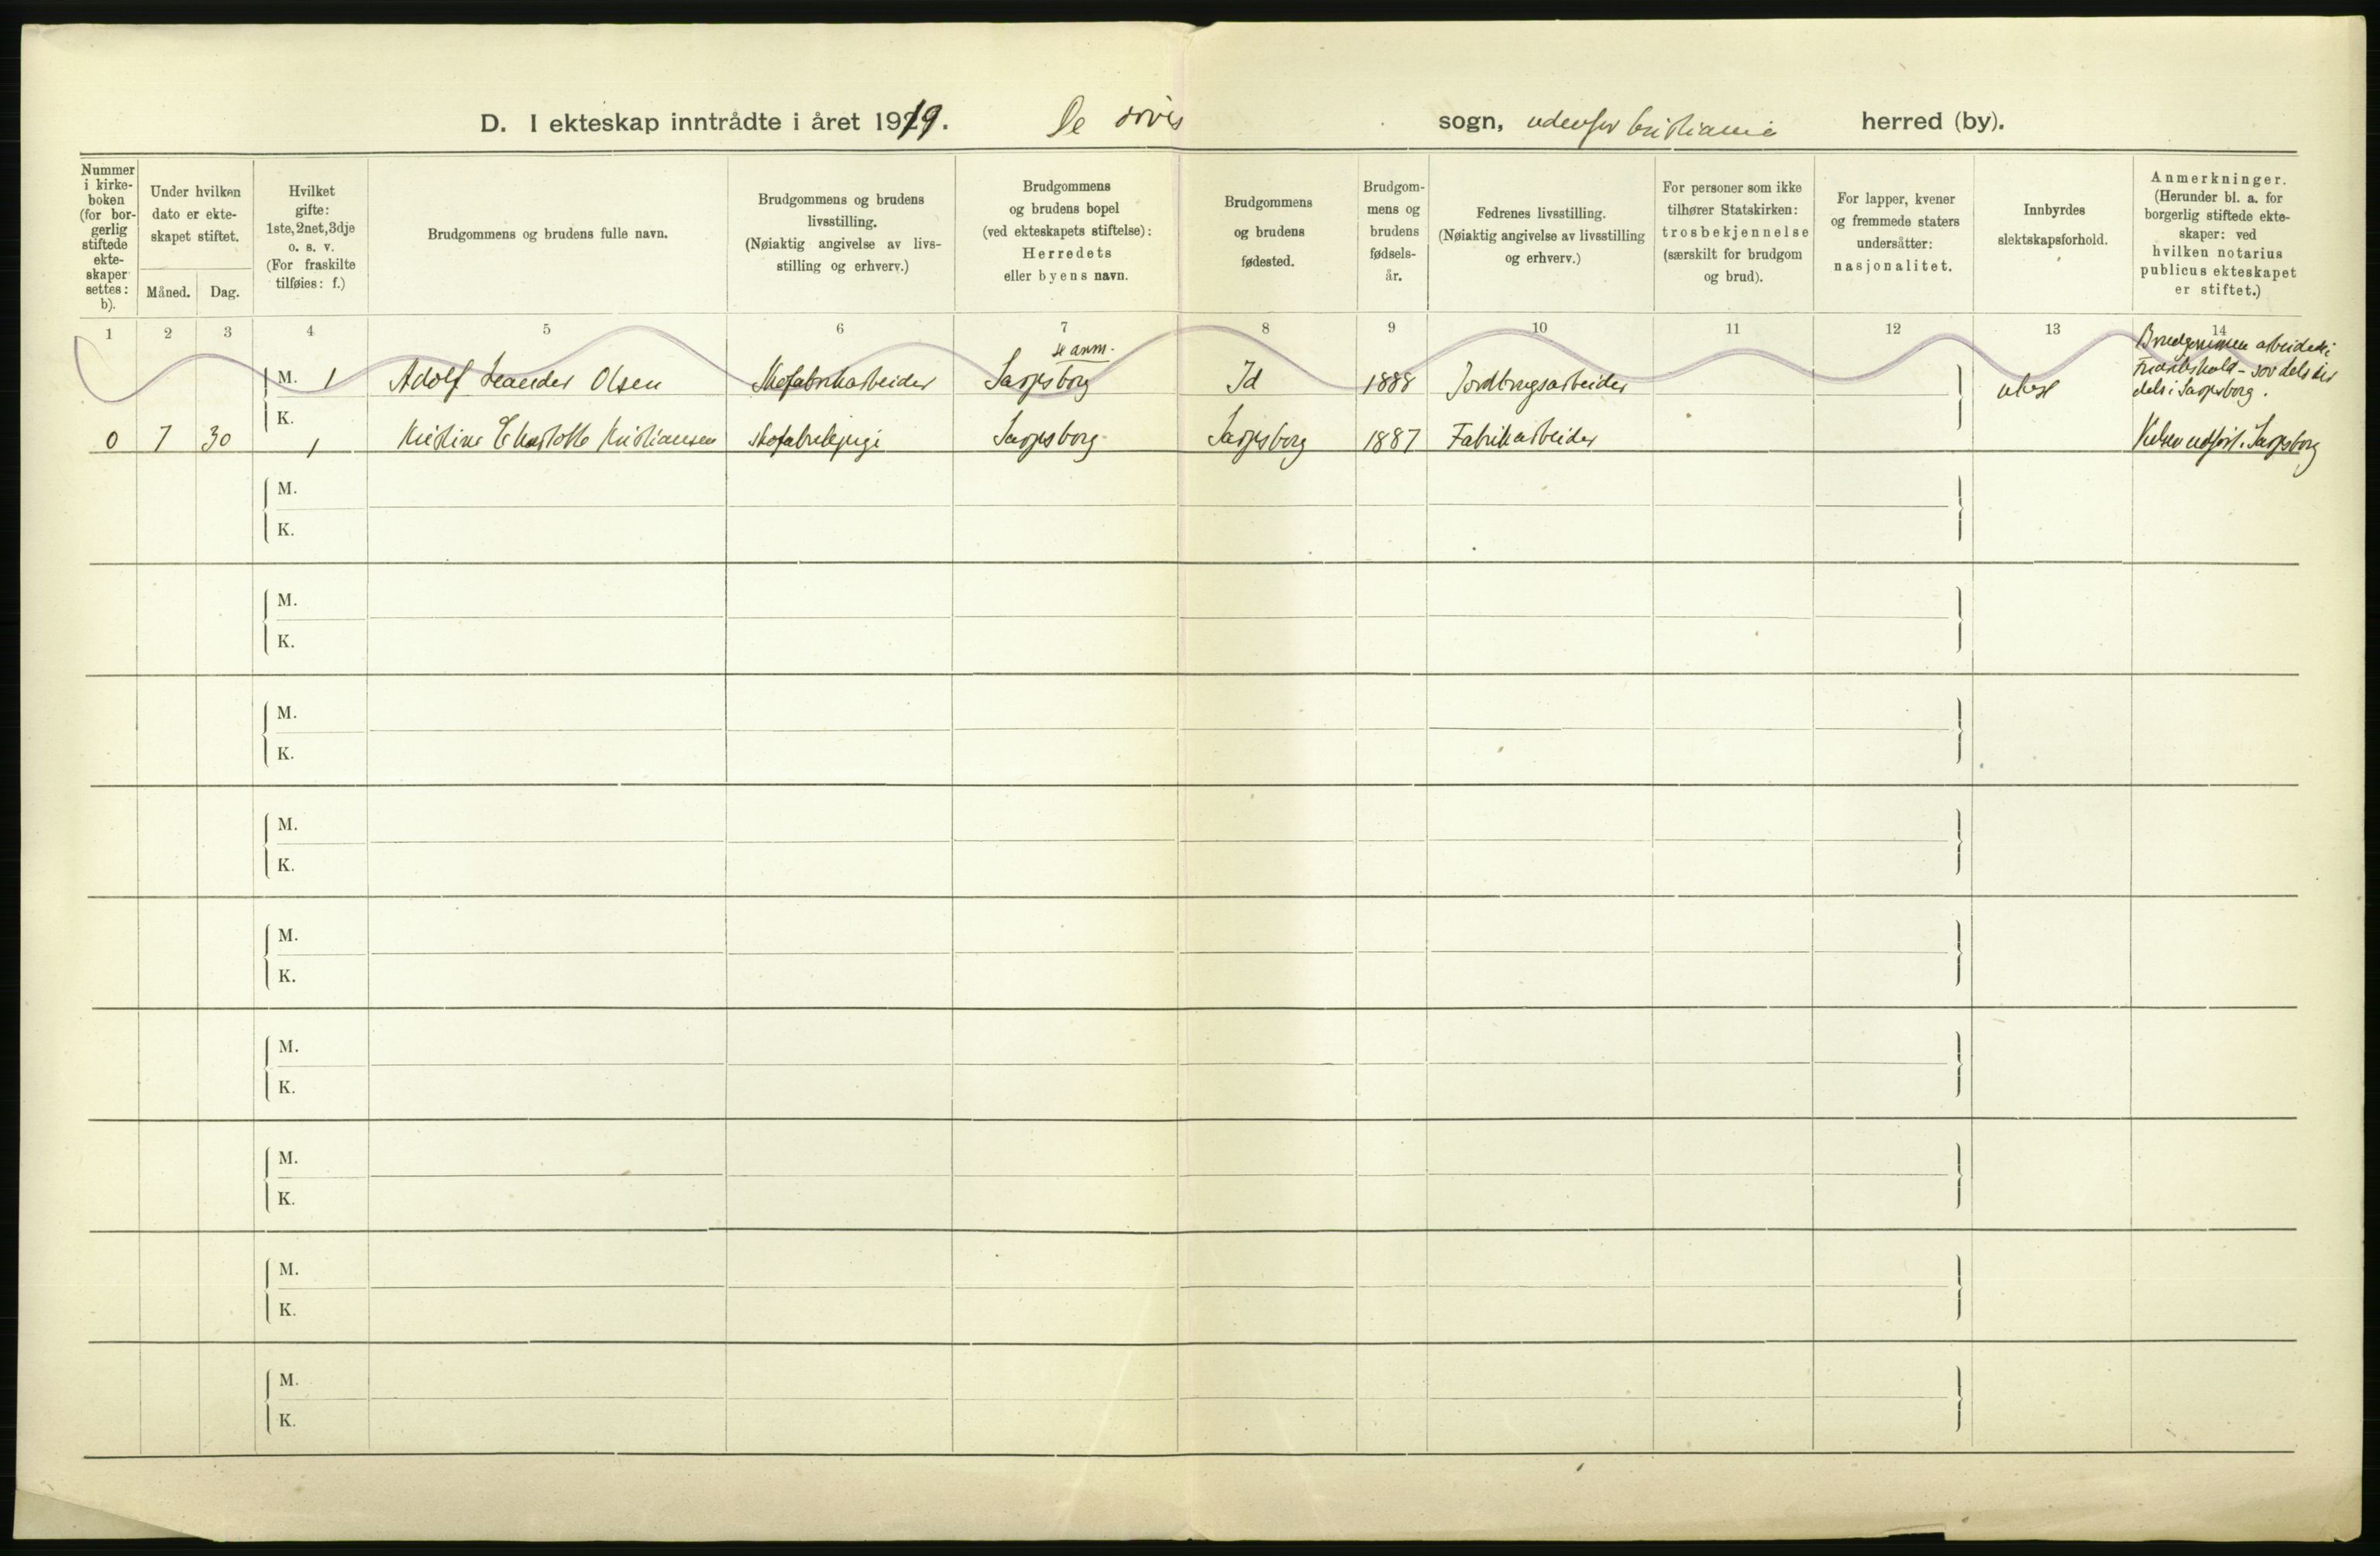 D. I ekteskap inntrådte i året 1919. De døves sogn, udenfor Kristiania herred (by).
Nummer i kirkeboken (for borgerlig stiftede ekteskaper settes: b).
Under hvilken dato er ekteskapet stiftet.
Måned.
Dag.
Hvilket gifte: 1ste, 2net, 3dje o. s. v. (For fraskilte tilføies: f.)
Brudgommens og brudens fulle navn.
Brudgommens og brudens livsstilling. (Nøiaktig angivelse av livsstilling og erhverv.)
Brudgommens og brudens bopel (ved ekteskapets stiftelse): Herredets eller byens navn.
Brudgommens og brudens fødested.
Brudgommens og brudens fødselsår.
Fedrenes livsstilling. (Nøiaktig angivelse av livsstilling og erhverv.)
For personer som ikke tilhører Statskirken: trosbekjennelse (særskilt for brudgom og brud).
For lapper, kvener og fremmede staters undersåtter: nasjonalitet.
Innbyrdes slektskapsforhold.
Anmerkninger. (Herunder bl. a. for borgerlig stiftede ekteskaper: ved hvilken notarius publicus ekteskapet er stiftet.)
1 2 3 4 5 6 7 8 9 10 11 12 13 14
M. 1 Adolf Leander Olsen Skofabrikarbeider se anm. Sarpsborg Id 1888 Jordbrugsarbeider
Brudgommen arbeidet i
Fredrikshald - sov dels der
dels i Sarpsborg.
0 7 30 K. 1 Kristine Charlotte Kristiansen Skofabrikpige Sarpsborg Sarpsborg 1887 Fabrikarbeider
Sarpsborg
M.
K.
M.
K.
M.
K.
M.
K.
M.
K.
M.
K.
M.
K.
M.
K.
M.
K.